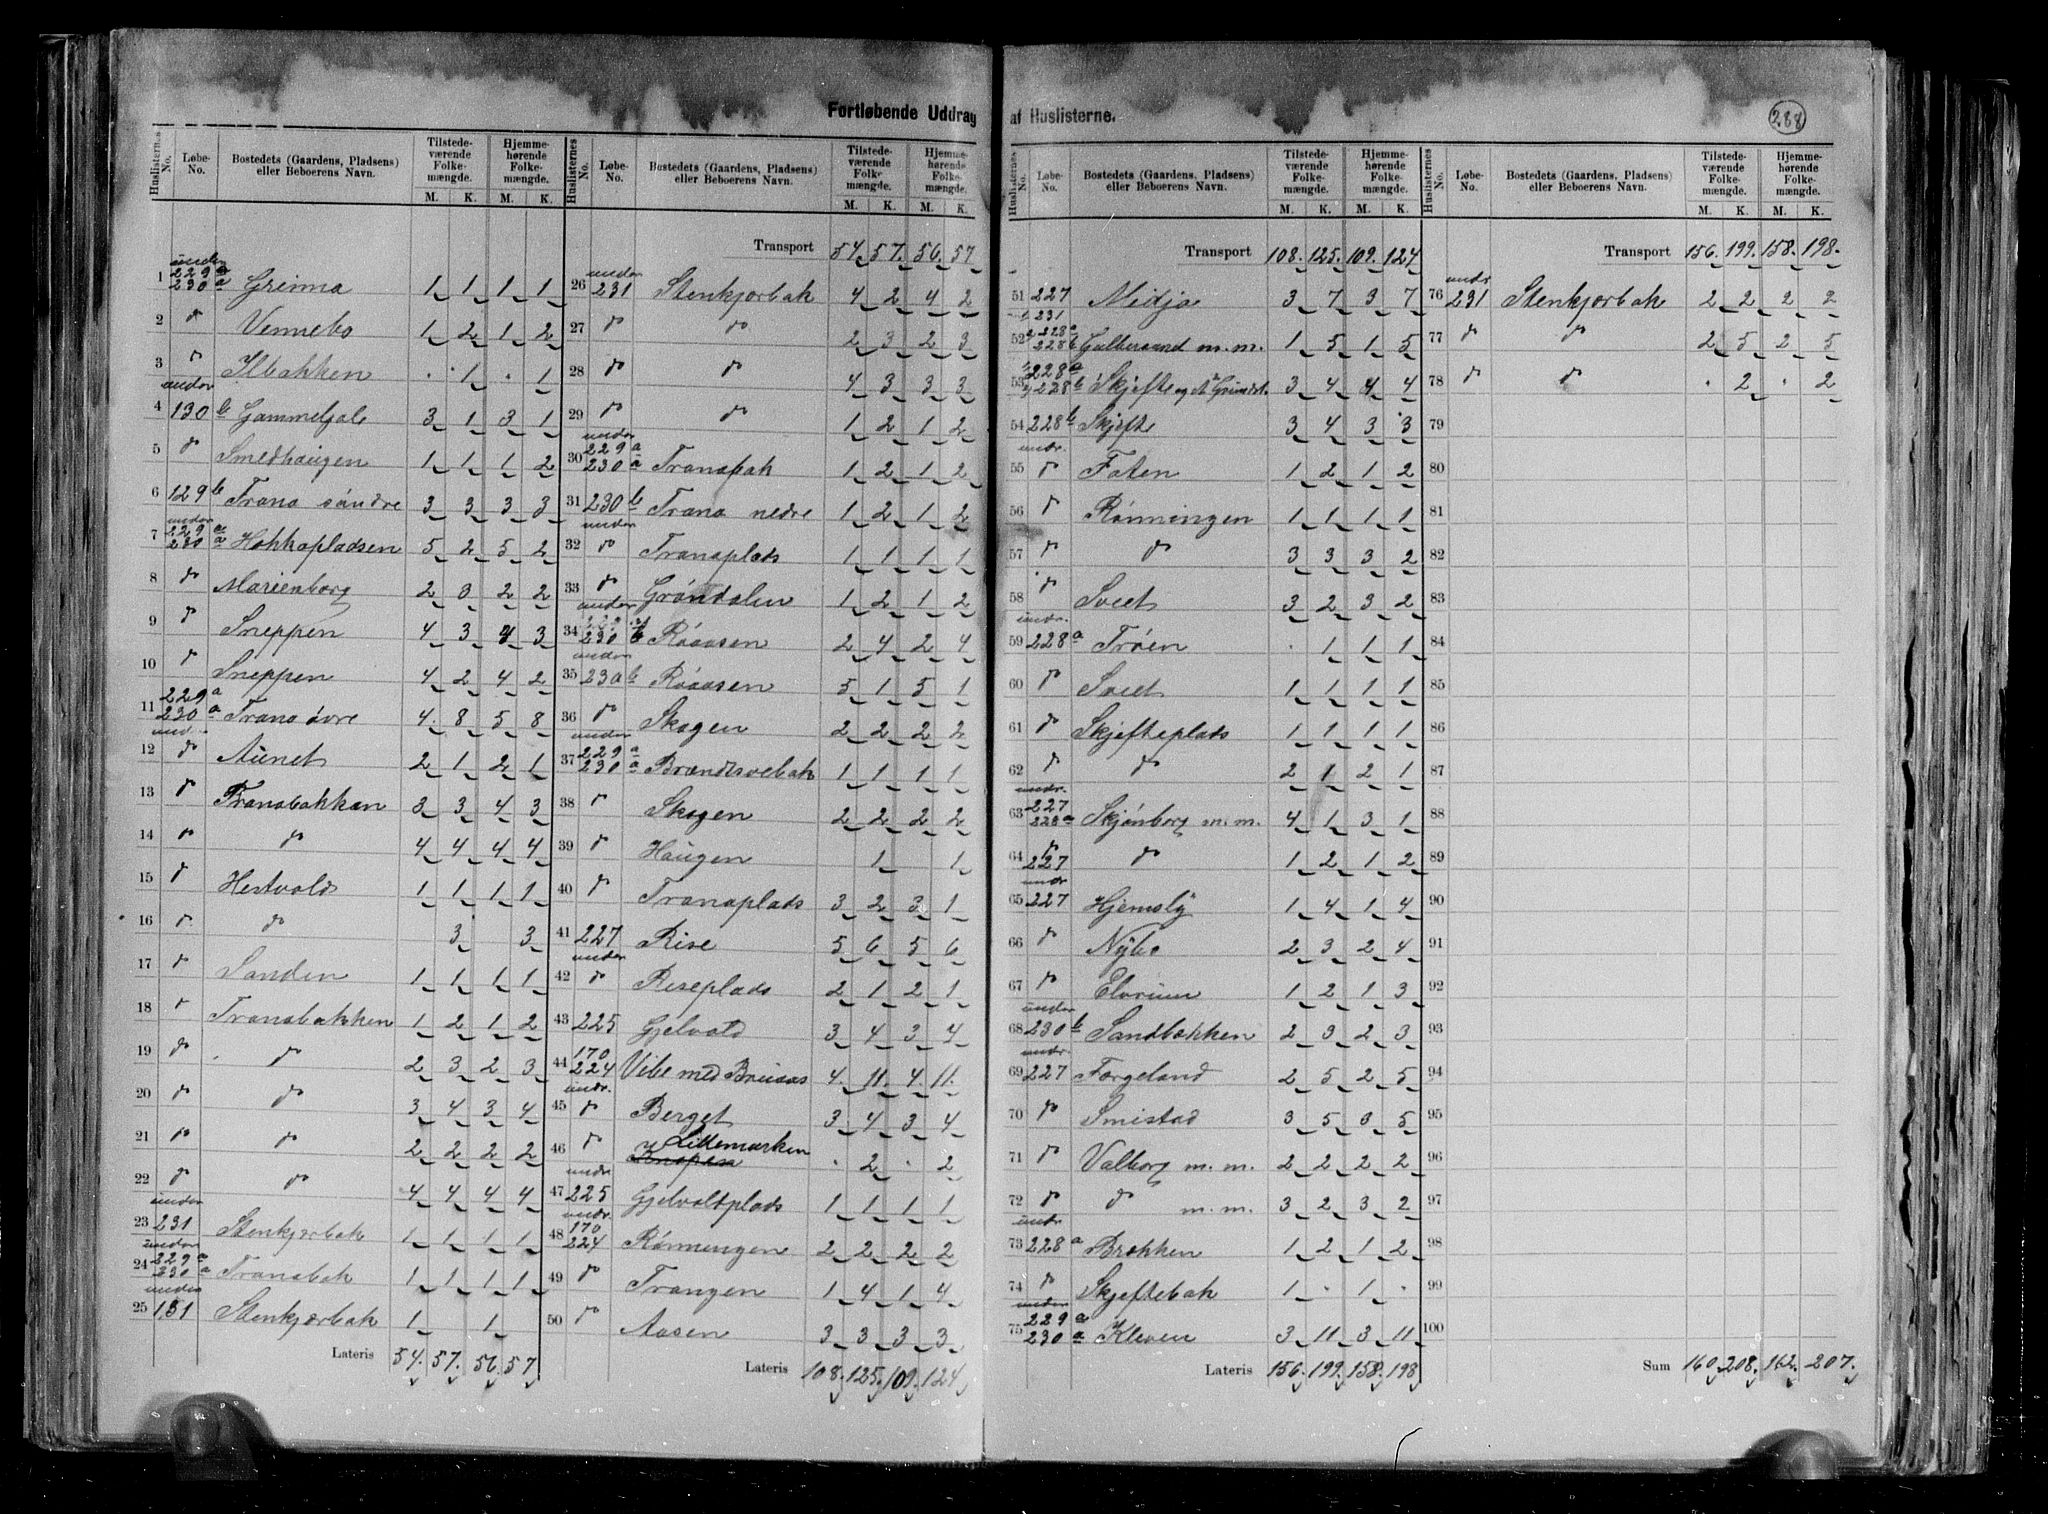 Fortløbende Uddrag af Huslisterne.
288
Huslisternes No. Løbe-No. Bostedets (Gaardens, Pladsens) eller Beboerens Navn. Tilstedeværende Folkemængde. M. K. Hjemmehørende Folkemængde. M. K.
1 under 229a 230a Grinna 1 1 1 1
2 " Vennebo 1 2 1 2
3 " Ilbakken . 1 . 1
4 under 130b Gammeljale 3 1 3 1
5 " Smedhaugen 1 1 1 2
6 129b Trana søndre 3 3 3 3
7 under 229a 230a Hokkapladsen 5 2 5 2
8 " Marienborg 2 3 2 2
9 " Sneppen 4 3 4 3
10 " Sneppen 4 2 4 2
11 229a 230a Trana øvre 4 8 5 8
12 und. " Aunet 2 1 2 1
13 " Tranabakkan 3 3 4 3
14 " " 4 4 4 4
15 " Hestvold 1 1 1 1
16 " " 3 3
17 " Sanden 1 1 1 1
18 " Tranabakken 1 2 1 2
19 " " 2 3 2 3
20 " " 3 4 3 4
21 " " 2 2 2 2
22 " " 4 4 4 4
23 under 231 Stenkjærbak 1 1 1 1
24 under 229a 230a Tranabak 1 1 1 1
25 under 131 Stenkjærbak 1 1
Lateris 54. 57. 56. 57
Huslisternes No. Løbe-No. Bostedets (Gaardens, Pladsens) eller Beboerens Navn. Tilstedeværende Folkemængde. M. K. Hjemmehørende Folkemængde. M. K.
Transport 54. 57. 56. 57
26 under 231 Stenkjærbak 4 2 4 2
27 " " 2 3 2 3
28 " " 4 3 3 3
29 " " 1 2 1 2
30 under 229a 230a Tranabak 1 2 1 2
31 230b Trana nedre 1 2 1 2
32 under " Tranaplads 1 1 1 1
33 " Grøndalen 1 2 1 2
34 under 230b Røaasen 2 4 2 4
35 under 230b Røaasen 5 1 5 1
36 " Skogen 2 2 2 2
37 under 229a 230a Brandtsvebak 1 1 1 1
38 " Skogen 2 2 2 2
39 " Haugen 1 1
40 " Tranaplads 3 2 3 1
41 227 Rise 5 6 5 6
42 under " Riseplads 2 1 2 1
43 225 Gjelvold 3 4 3 4
44 170 224 Vibe med Bruaas 4. 11. 4. 11.
45 undr. " Berget 3 4 3 4
46 " Lillemarken . 2 . 2
47 undr 225 Gjelvoldplads 1 1 1 1
48 undr. 170 224 Rønningen 2 2 2 2
49 " Trangen 1 4 1 4
50 " Aasen 3 3 3 3
Lateris 108. 125. 109. 124
Huslisternes No. Løbe-No. Bostedets (Gaardens, Pladsens) eller Beboerens Navn. Tilstedeværende Folkemængde. M. K. Hjemmehørende Folkemængde. M. K.
Transport 108. 125. 109. 124
51 227 Midjo 3 7 3 7
52 231 228a 228b Gulbersund m.m. 1 5 1 5
53 228a 228b Skjefte og Grundst. 3 4 4 4
54 228b Skjefte 3 4 3 3
55 undr. " Faten 1 2 1 2
56 " Rønningen 1 1 1 1
57 " " 3 3 3 2
58 " Sveet 3 2 3 2
59 undr. 228a Trøen . 1 1 1
60 " Sveet 1 1 1 1
61 " Skjefteplads 1 1 1 1
62 " " 2 1 2 1
63 undr. 227 228a Skjønborg m.m. 4 1 3 1
64 " 227 " 1 2 1 2
65 undr 227 Hjemsly 1 4 1 4
66 " Nybo 2 3 2 4
67 " Elvrum 1 2 1 3
68 under 230b Sandbakken 2 3 2 3
69 undr. 227 Fargeland 2 5 2 5
70 " Smistad 3 5 3 5
71 " Valborg m.m. 2 2 2 2
72 " " m.m. 3 2 3 2
73 undr. 228a Brækken 1 2 1 2
74 " Skjeftebak 1 . 1 .
75 under 229a 230a Kleven 3 11 3 11
Lateris 156. 199. 158. 198
Huslisternes No. Løbe-No. Bostedets (Gaardens, Pladsens) eller Beboerens Navn. Tilstedeværende Folkemængde. M. K. Hjemmehørende Folkemængde. M. K.
Transport 156. 199. 158. 198.
76 undr 231 Stenkjærbak 2 2 2 2
77 " " 2 5 2 5
78 " " . 2 . 2
79
80
81
82
83
84
85
86
87
88
89
90
91
92
93
94
95
96
97
98
99
100
Sum 160. 208. 162. 207.